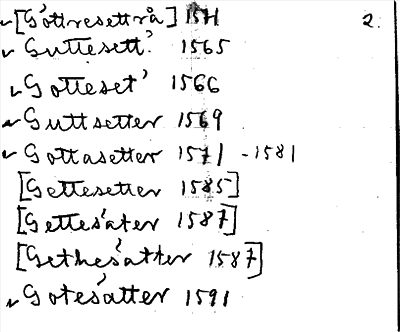 [Göttresettrå] 1541 2.
Guttesett? 1565
Gotteset' 1566
Guttsetter 1569
Gottasetter 1571 - 1581
[Gettesetter 1585]
[Gettesäter 1587]
[Gethesätter 1587]
Gotesätter 1591